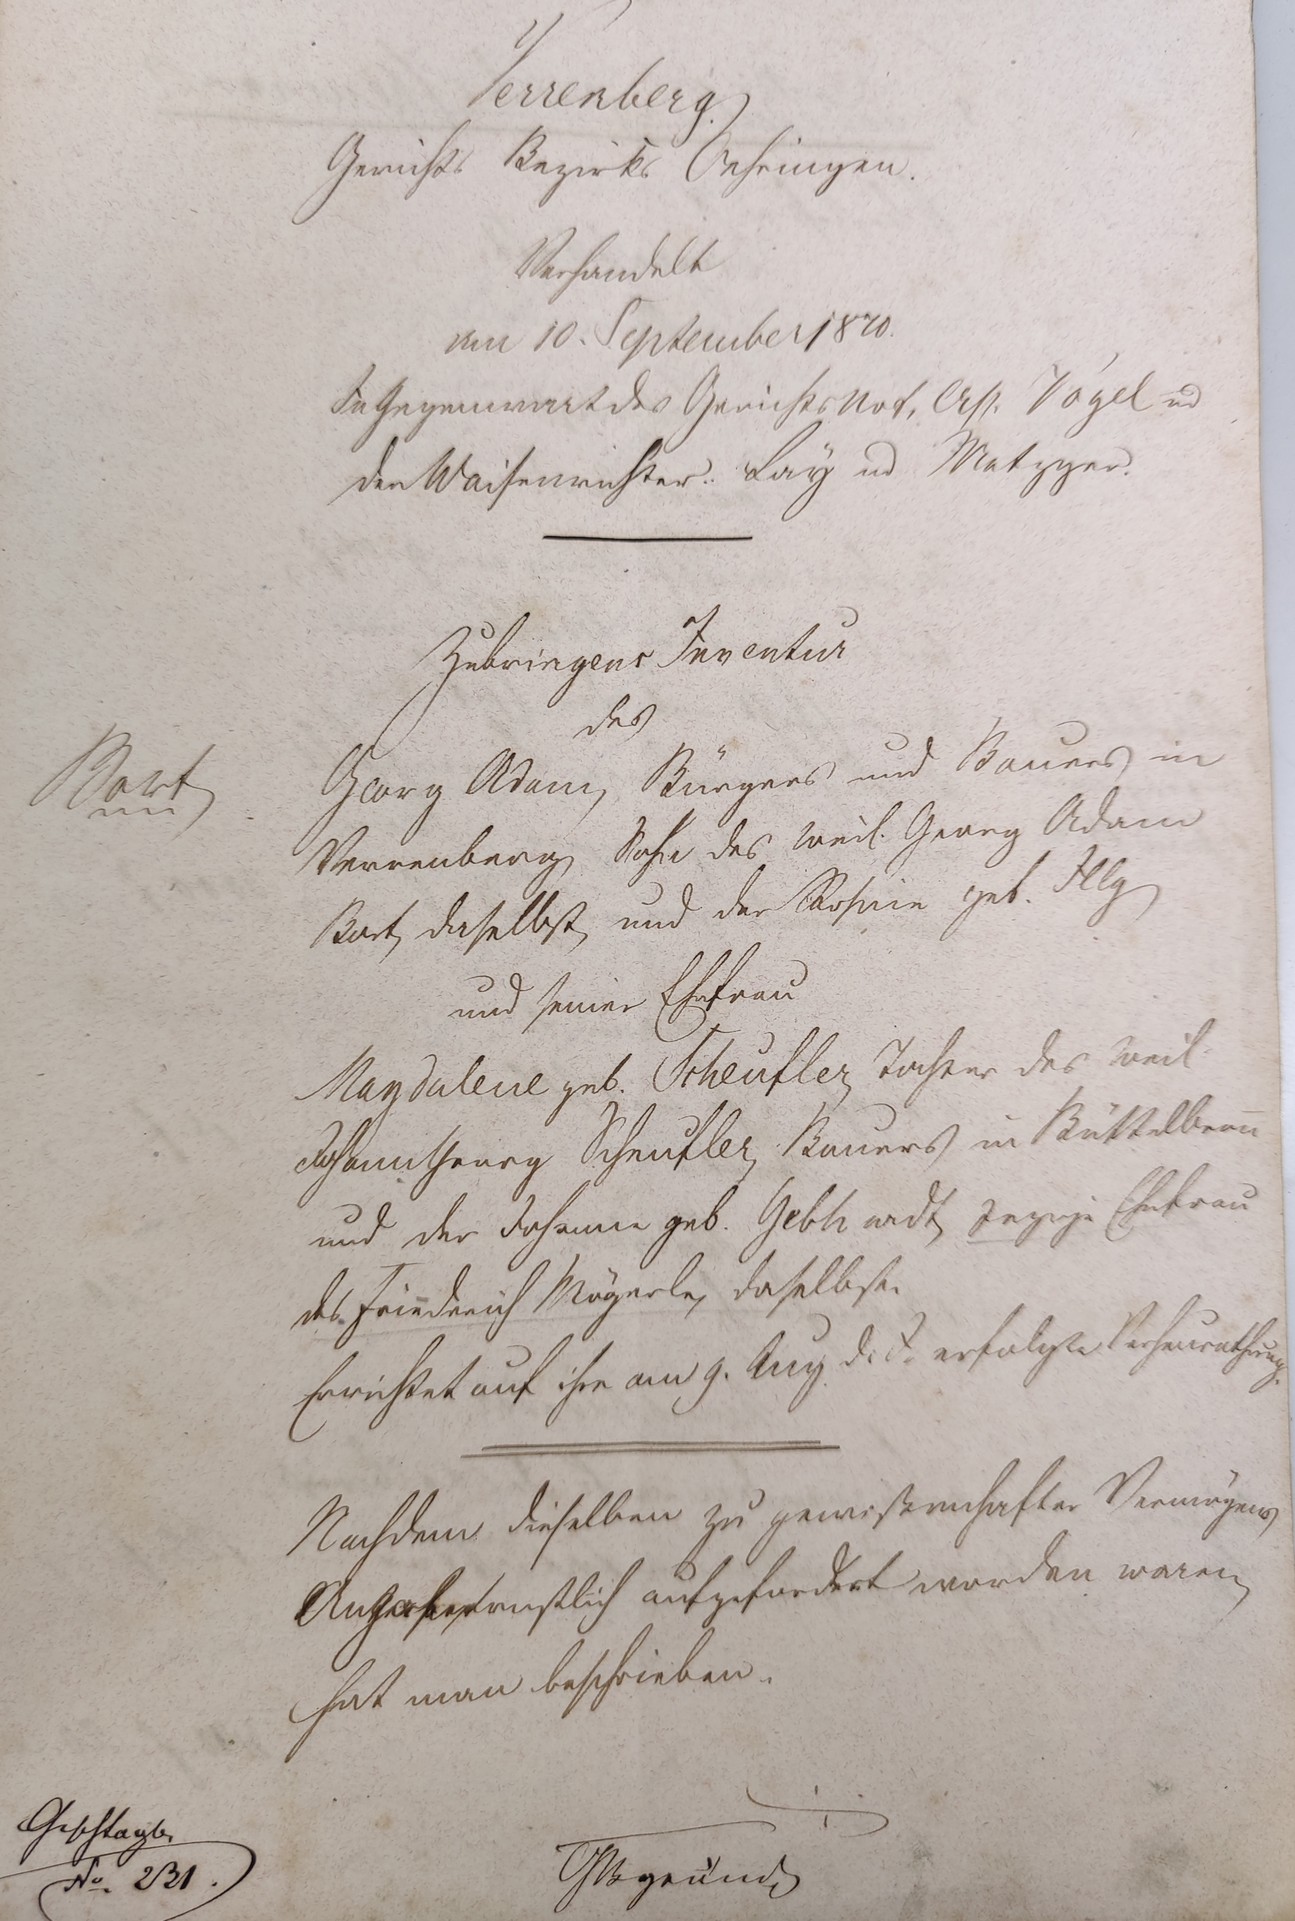 Verrenberg.
Gerichts Bezirks Oehringen.
Verhandelt
am 10. September 1870.
In Gegenwart des Gerichts Not. Ass. Vogel ud
der Waisenrichter: Lay ud Metzger.
Zubringens Inventur
des
Bort
Georg Adam, Bürgers und Bauers in
Verrenberg, Sohn des weil. Georg Adam
Bort, daselbst, und der Rosine geb. Illg,
und seiner Ehefrau
Magdalene geb. Scheufler, Tochter des weil.
Johann Georg Scheufler, Bauers in Büttelbronn
und der Johanne geb. Gebhardt, Ehefrau
des Friedrich Mögerle, daselbst.
Errichtet auf ihre am 9. Aug d. J. erfolgte Verheurathung.
Nachdem dieselben zu gewissenhafter Vermögens
Angabe ernstlich aufgefordert worden waren,
hat man beschrieben.
Geschtagb.
No. 231.